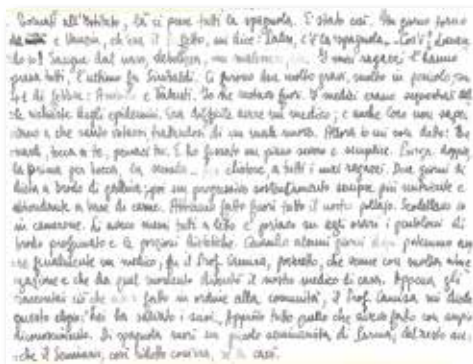 Tornati all'Istituto, là ci prese tutti la spagnola. È stato così. Un giorno torno
da e Venezia, ch'era il letto, mi dice: Padre, c'è la spagnola. Cos'è? Avevo
Sangue dal naso, debolezza, I miei ragazzi l'hanno
presa tutti. L'ultimo fu Sinibaldi. Ci furono due molto gravi, molto in pericolo, con
41 di febbre: e Io ne restavo fuori. I medici erano superati dalle
richieste degli epidemici. Era difficile avere un medico; e anche loro non sape-
vano che santo votarsi trattandosi di un male nuovo. Allora io mi son detto:
tocca a te, pensaci tu. E ho fissato un piano severo e semplice. Purga, doppia,
la prima per bocca, la seconda clistere, a tutti i miei ragazzi. Due giorni di
dieta a brodo di gallina; poi un progressivo sempre più nutriente e
abbondante a base di carne. Abbiamo fatto fuori tutto il nostro pollaio.
in camerone. Li avevo messi tutti a letto e portavo su agli orari i pentoloni di
brodo profumato e le porzioni dietetiche. Quando alcuni giorni dopo potemmo ave-
re finalmente un medico, fu il Prof. Canura, poveretto, che venne con molta
e che da quel momento diventò il nostro medico di casa. Appena gli
raccontai ciò che fatto in ordine alla comunità, il Prof. Canura mi diede
questo elogio: lei ha salvato i suoi. Appunto tutto quello che avevo fatto con ampio
riconoscimento. Di spagnola morì un piccolo di Parma, del resto an-
che il Seminario, così ridotto com'era, casi.